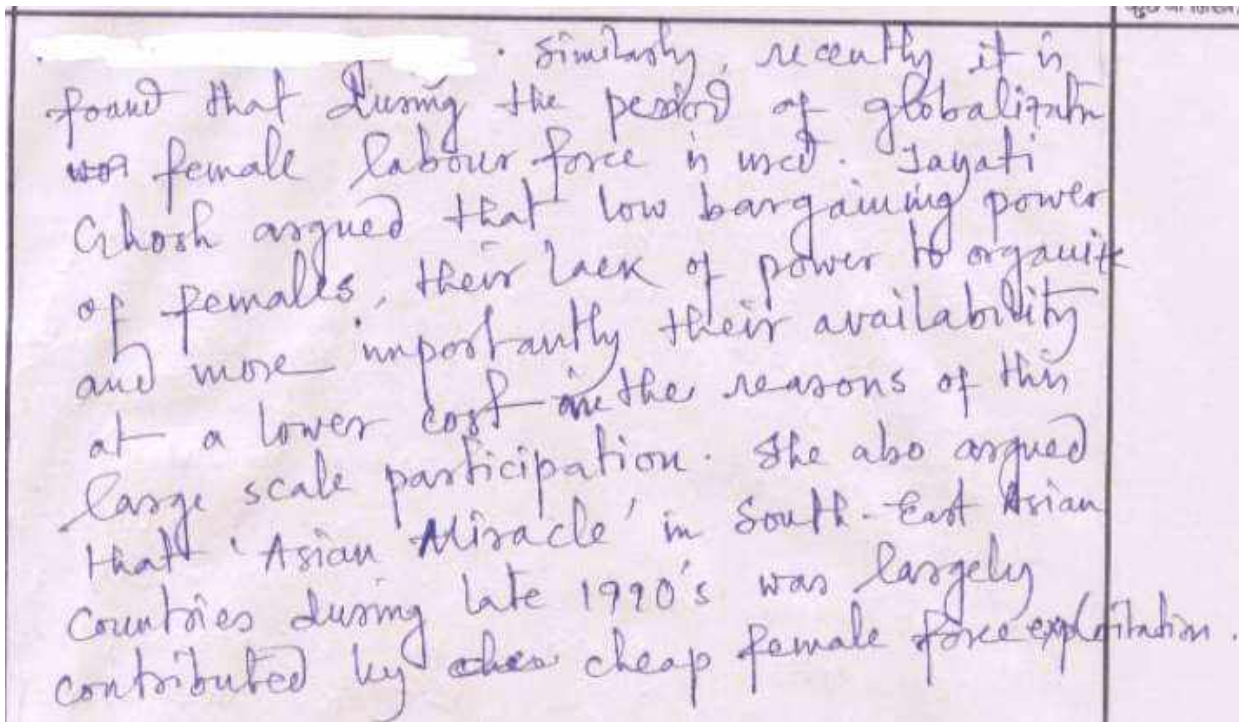 . Similarly, recently it is
found that during the period of globalizatn
female labour force is used. Jayati
Ghosh argued that low bargaining power
of females, their lack of power to organize
and more importantly their availability
at a lower cost are the reasons of this
large scale participation. She also argued
that 'Asian Miracle' in South-East Asian
Countries during late 1990's was largely
contributed by cheap female force exploitation.